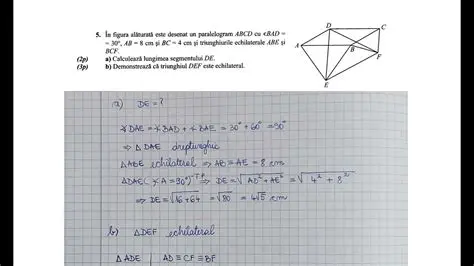 5. În figura alăturată este desenat un paralelogram ABCD cu ∢BAD =
= 30°, AB = 8 cm și BC = 4 cm și triunghiurile echilaterale ABE și
BCF.
(2p) a) Calculează lungimea segmentului DE.
(3p) b) Demonstrează că triunghiul DEF este echilateral.
D
C
A
B
F
E
a) DE = ?
∢DAE = ∢BAD + ∢BAE = 30° + 60° = 90°
⇒ △DAE dreptunghic
△ABE echilateral ⇒ AB = AE = 8 cm
△DAE (∢A = 90°) T.P. ⇒ DE = √AD² + AE² = √4² + 8²
⇒ DE = √16 + 64 = √80 = 4√5 cm
b) △DEF echilateral
△ADE | AD ≡ CF ≡ BF